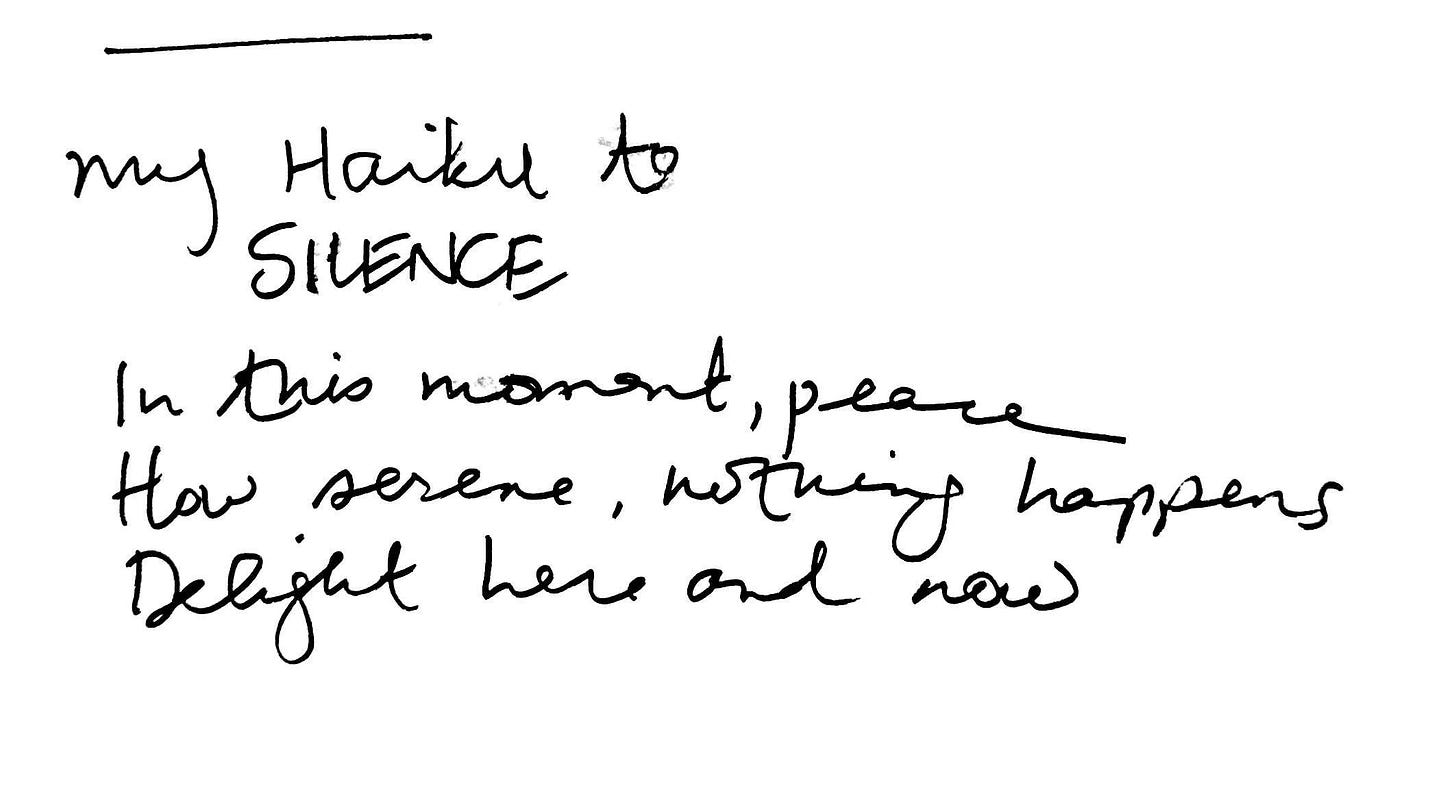 my Haiku to
SILENCE
In this moment, peace
How serene, nothing happens
Delight here and now